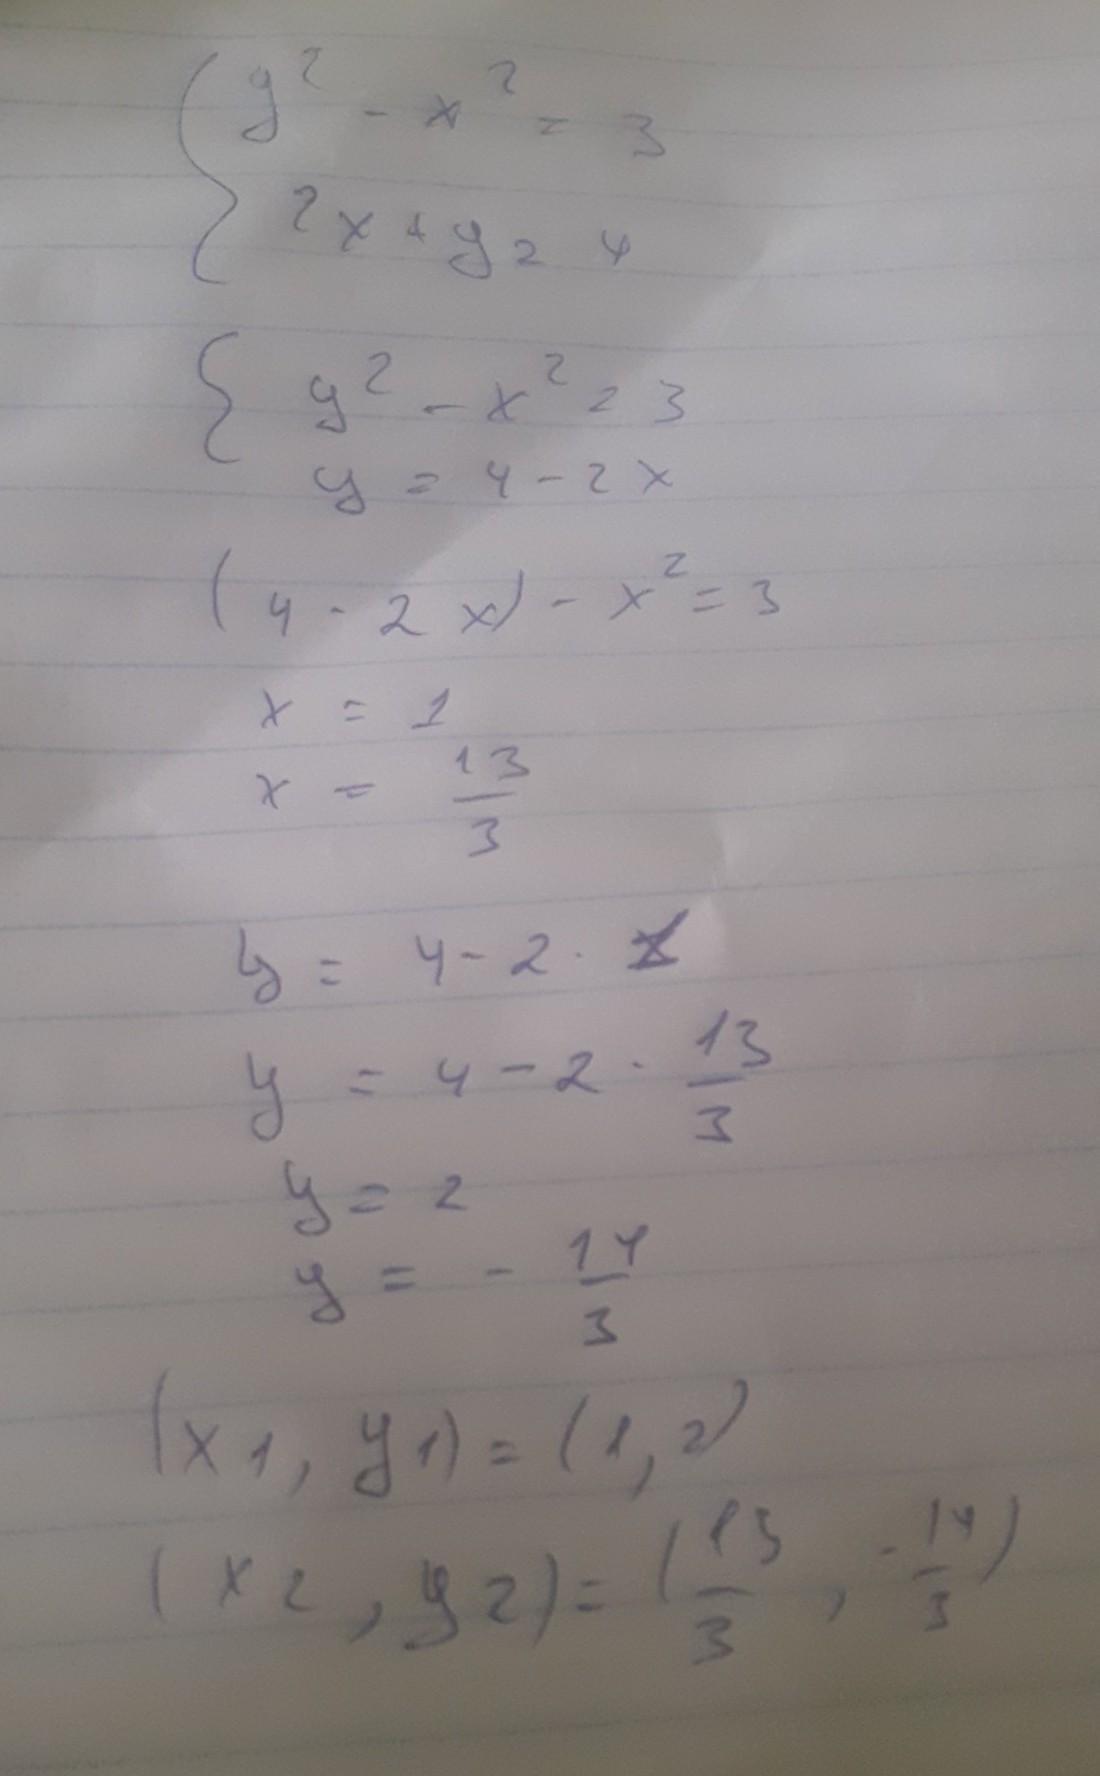 y² - x² = 3
2x + y = 4
y² - x² = 3
y = 4 - 2x
(4 - 2x) - x² = 3
x = 1
x = 13/3
y = 4 - 2 · 1
y = 4 - 2 · 13/3
y = 2
y = - 14/3
(x1, y1) = (1, 2)
(x2, y2) = (13/3, -14/3)